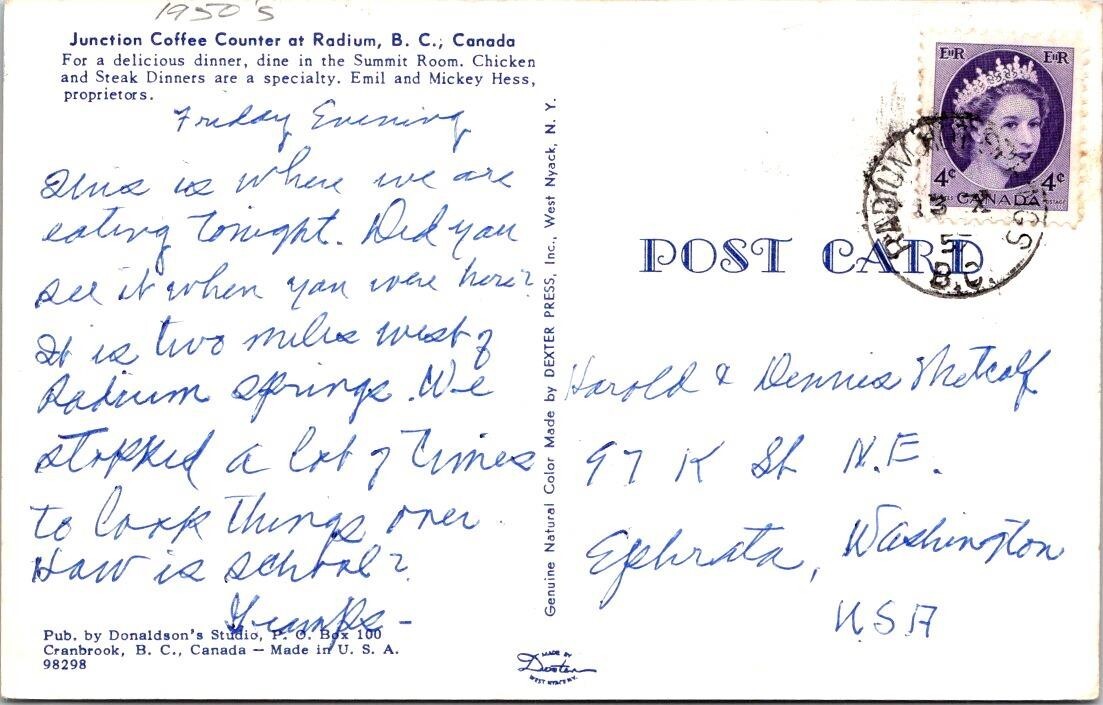 1950's
Junction Coffee Counter at Radium, B. C., Canada
For a delicious dinner, dine in the Summit Room. Chicken
and Steak Dinners are a specialty. Emil and Mickey Hess,
proprietors.
Friday Evening
This is where we are
eating tonight. Did you
see it when you were here?
It is two miles west of
Radium Springs. We
stopped a lot of times
to look things over
How is school?
Gramps -
Pub. by Donaldson's Studio, P. O. Box 100
Cranbrook, B. C., Canada — Made in U. S. A.
98298
Genuine Natural Color Made by DEXTER PRESS, Inc., West Nyack, N. Y.
MADE BY
Dexter
WEST NYACK N.Y.
EIIR EIIR
4c 4c
CANADA
POSTAGE
RADIUM HOT SPRINGS
13 X
5
B.C.
POST CARD
Harold & Dennis Metcalf
97 K St N.E.
Ephrata, Washington
USA